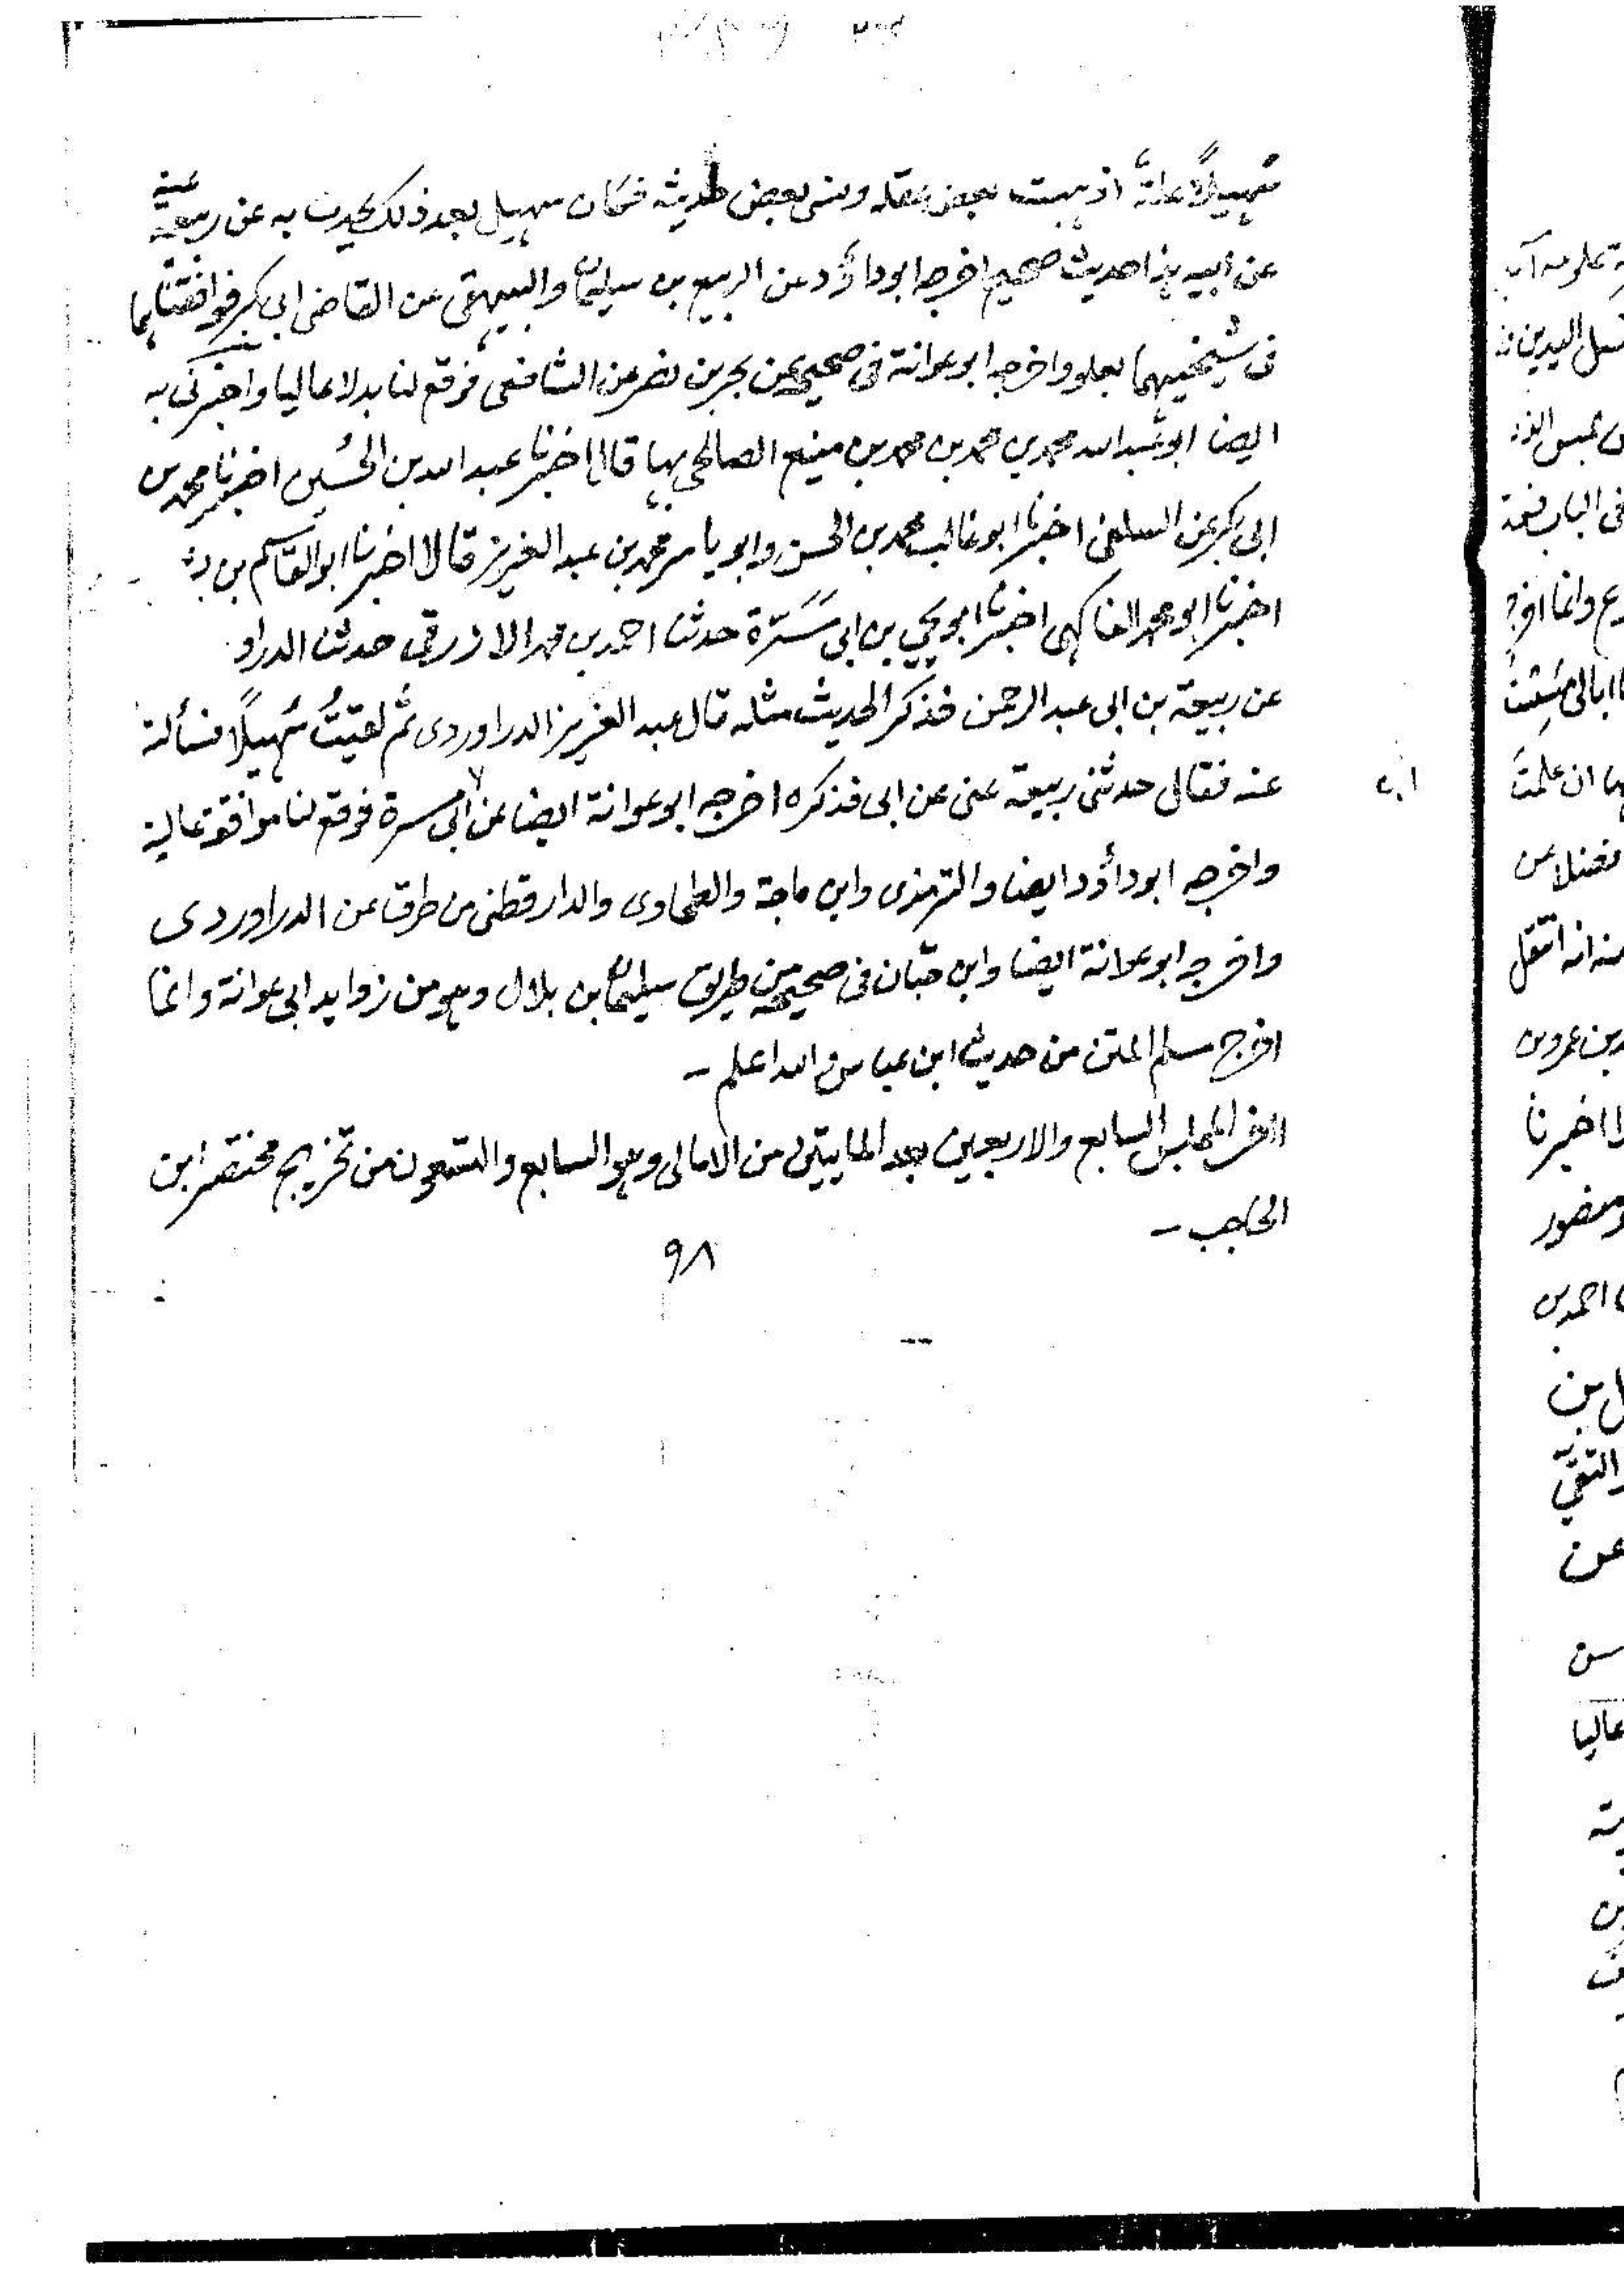 سهيلاً علة اذهبت بعض عقله ونسى بعض حديثه فكان سهيل بعد ذلك يحدث به عن ربيعة عنه
عن ابيه هذا حديث صحيح اخرجه ابوداؤد عن الربيع بن سليمان والبيهقى عن القاضى ابى بكر فوافقناهما
فى شيخيهما بعلو واخرجه ابو عوانة فى صحيحه عن بحر بن نصر عن الشافعى فوقع لنا بدلا عاليا واخبرنى به
ايضا ابو عبد الله محمد بن محمد بن محمد بن منيع الصالحى بها قال اخبرنا عبد الله بن الحسين اخبرنا محمد بن
ابى بكر عن السلفى اخبرنا ابو غالب محمد بن الحسن وابو ياسر محمد بن عبد العزيز قالا اخبرنا ابو القاسم بن
اخبرنا ابو محمد الفاكهى اخبرنا ابو يحيى بن ابى مسرة حدثنا احمد بن محمد الازرقى حدثنا الدراو
عن ربيعة بن ابى عبد الرحمن فذكر الحديث مثله قال عبد العزيز الدراوردى ثم لقيتُ سُهيلاً فسألته
عنه فقال حدثنى ربيعة عنى عن ابى فذكره اخرجه ابو عوانة ايضا عن ابى مسرة فوقع لنا موافقة عالية
واخرجه ابوداؤد ايضا والترمذى وابن ماجة والطحاوى والدارقطنى من طرق عن الدراوردى
واخرجه ابو عوانة ايضا وابن حبّان فى صحيحه من طريق سليمان بن بلال وهو من زوايد ابى عوانة وانما
اخرج مسلم المتن من حديث ابن عباس والله اعلم -
اخر المجلس السابع والاربعين بعد المايتين من الامالى وهو السابع والتسعون من تخريج مختصر ابن
الحاجب -
٩٨
فى الباب
وانما اخرج
ان علمت
فضلا عن
منه انه انتقل
بن عمرو بن
اخبرنا
منصور
احمد بن
بن
عن
عاليا